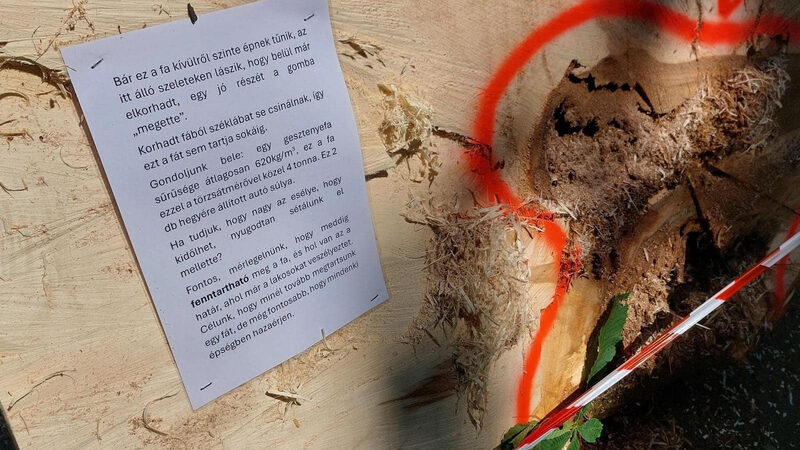 Bár ez a fa kívülről szinte épnek tűnik, az
itt álló szeleteken lászik, hogy belül már
elkorhadt, egy jó részét a gomba
„megette”.
Korhadt fából széklábat se csinálnak, így
ezt a fát sem tartja sokáig.
Gondoljunk bele: egy gesztenyefa
sűrűsége átlagosan 620kg/m³, ez a fa
ezzel a törzsátmérővel közel 4 tonna. Ez 2
db hegyére állított autó súlya.
Ha tudjuk, hogy nagy az esélye, hogy
kidőlhet, nyugodtan sétálunk el
mellette?
Fontos, mérlegelnünk, hogy meddig
fenntartható meg a fa, és hol van az a
határ, ahol már a lakosokat veszélyeztet.
Célunk, hogy minél tovább megtartsunk
egy fát, de még fontosabb, hogy mindenki
épségben hazaérjen.